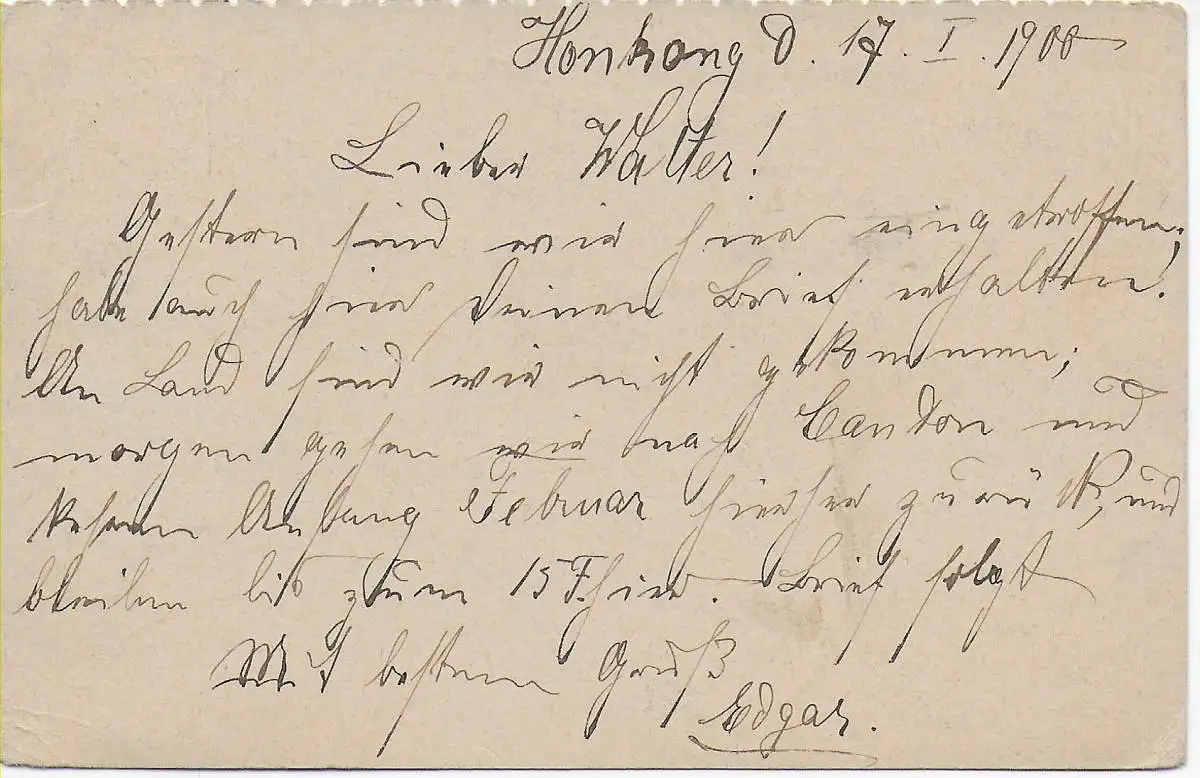 Honkong d. 17. I. 1900
Lieber Walter!
Gestern sind wir hier eingetroffen;
habe auch hier Deinen Brief erhalten.
An Land sind wir nicht gekommen;
morgen gehen wir nach Canton und
kehren Anfang Februar hierher zurück, und
bleiben bis zum 15 F. hier. Brief folgt
Mit bestem Gruß
Edgar.